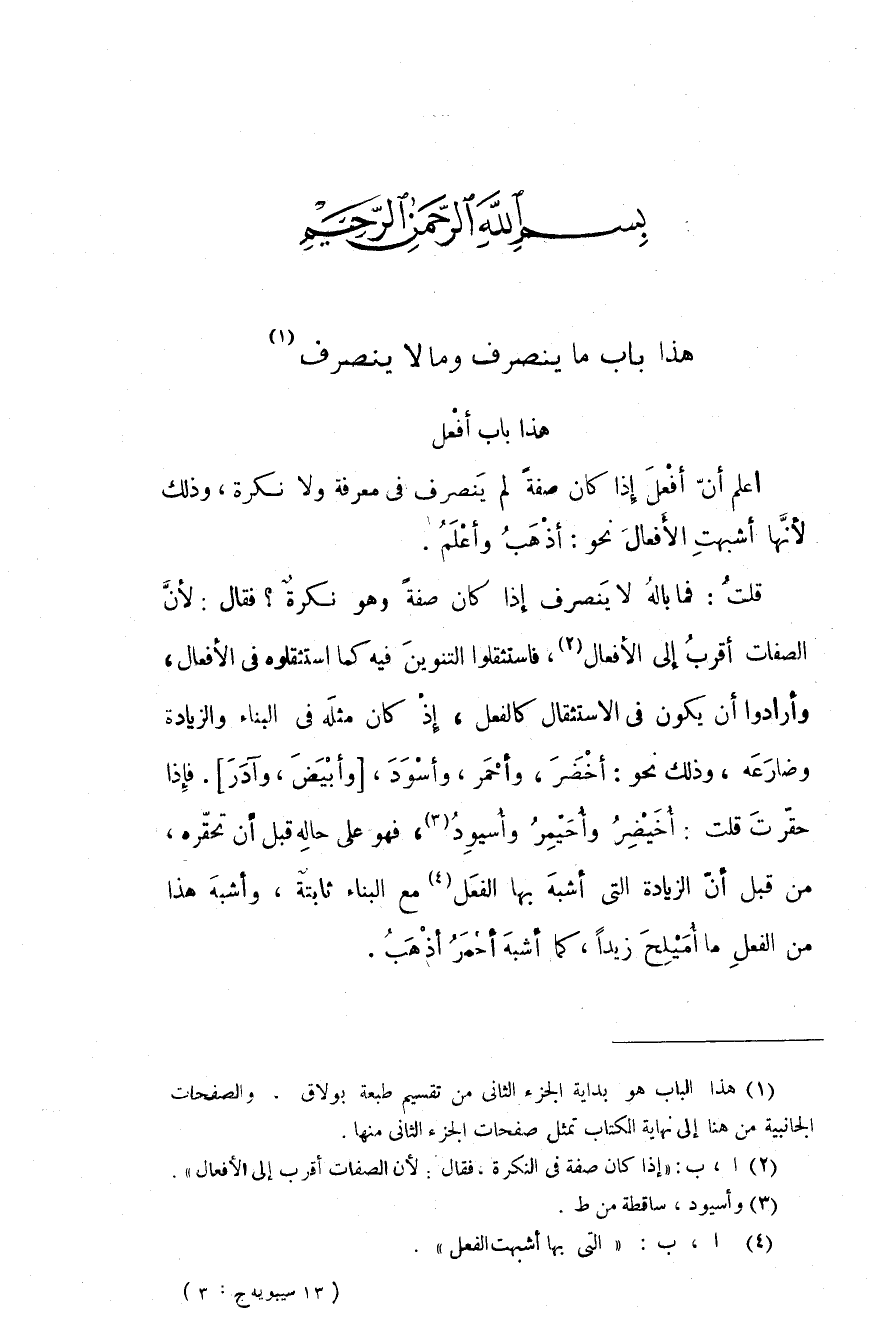 بِسْمِ ٱللَّهِ ٱلرَّحْمَٰنِ ٱلرَّحِيمِ
هذا باب ما ينصرف وما لا ينصرف (١)
هذا باب أفْعل
اعلم أنّ أفْعلَ إذا كان صفةً لم يَنصرف فى معرفة ولا نكرة ، وذلك
لأنَّها أشبهتِ الأَفعالَ نحو : أذْهَبُ وأعْلَمُ .
قلتُ : فما بالهُ لا يَنصرف إذا كان صفةً وهو نكرةٌ ؟ فقال : لأنَّ
الصفات أقربُ إلى الأفعال (٢) ، فاستثقلوا التنوينَ فيه كما استثقلوه فى الأفعال ،
وأرادوا أن يكون فى الاستثقال كالفعل ، إذْ كان مثلَه فى البناء والزيادة
وضارَعَه ، وذلك نحو : أخْضَرَ ، وأحْمَر ، وأسْوَدَ ، [وأبْيَضَ ، وآدَرَ] . فإذا
حقّرتَ قلت : أُخَيْضِرُ وأُحَيْمِرُ وأُسيودُ (٣) ، فهو على حاله قبل أن تحقّره ،
من قبل أنّ الزيادة التى أشبهَ بها الفعَل (٤) مع البناء ثابتةٌ ، وأشبهَ هذا
من الفعلِ ما أُمَيْلِحَ زيداً ، كما أشبهَ أحْمَرُ أذْهَبُ .
(١) هذا الباب هو بداية الجزء الثانى من تقسيم طبعة بولاق . والصفحات
الجانبية من هنا إلى نهاية الكتاب تمثل صفحات الجزء الثانى منها .
(٢) ا ، ب : «إذا كان صفة فى النكرة . فقال : لأن الصفات أقرب إلى الأفعال» .
(٣) وأسيود ، ساقطة من ط .
(٤) ا ، ب : « التى بها أشبهت الفعل » .
( ١٣ سيبويه ج : ٣ )